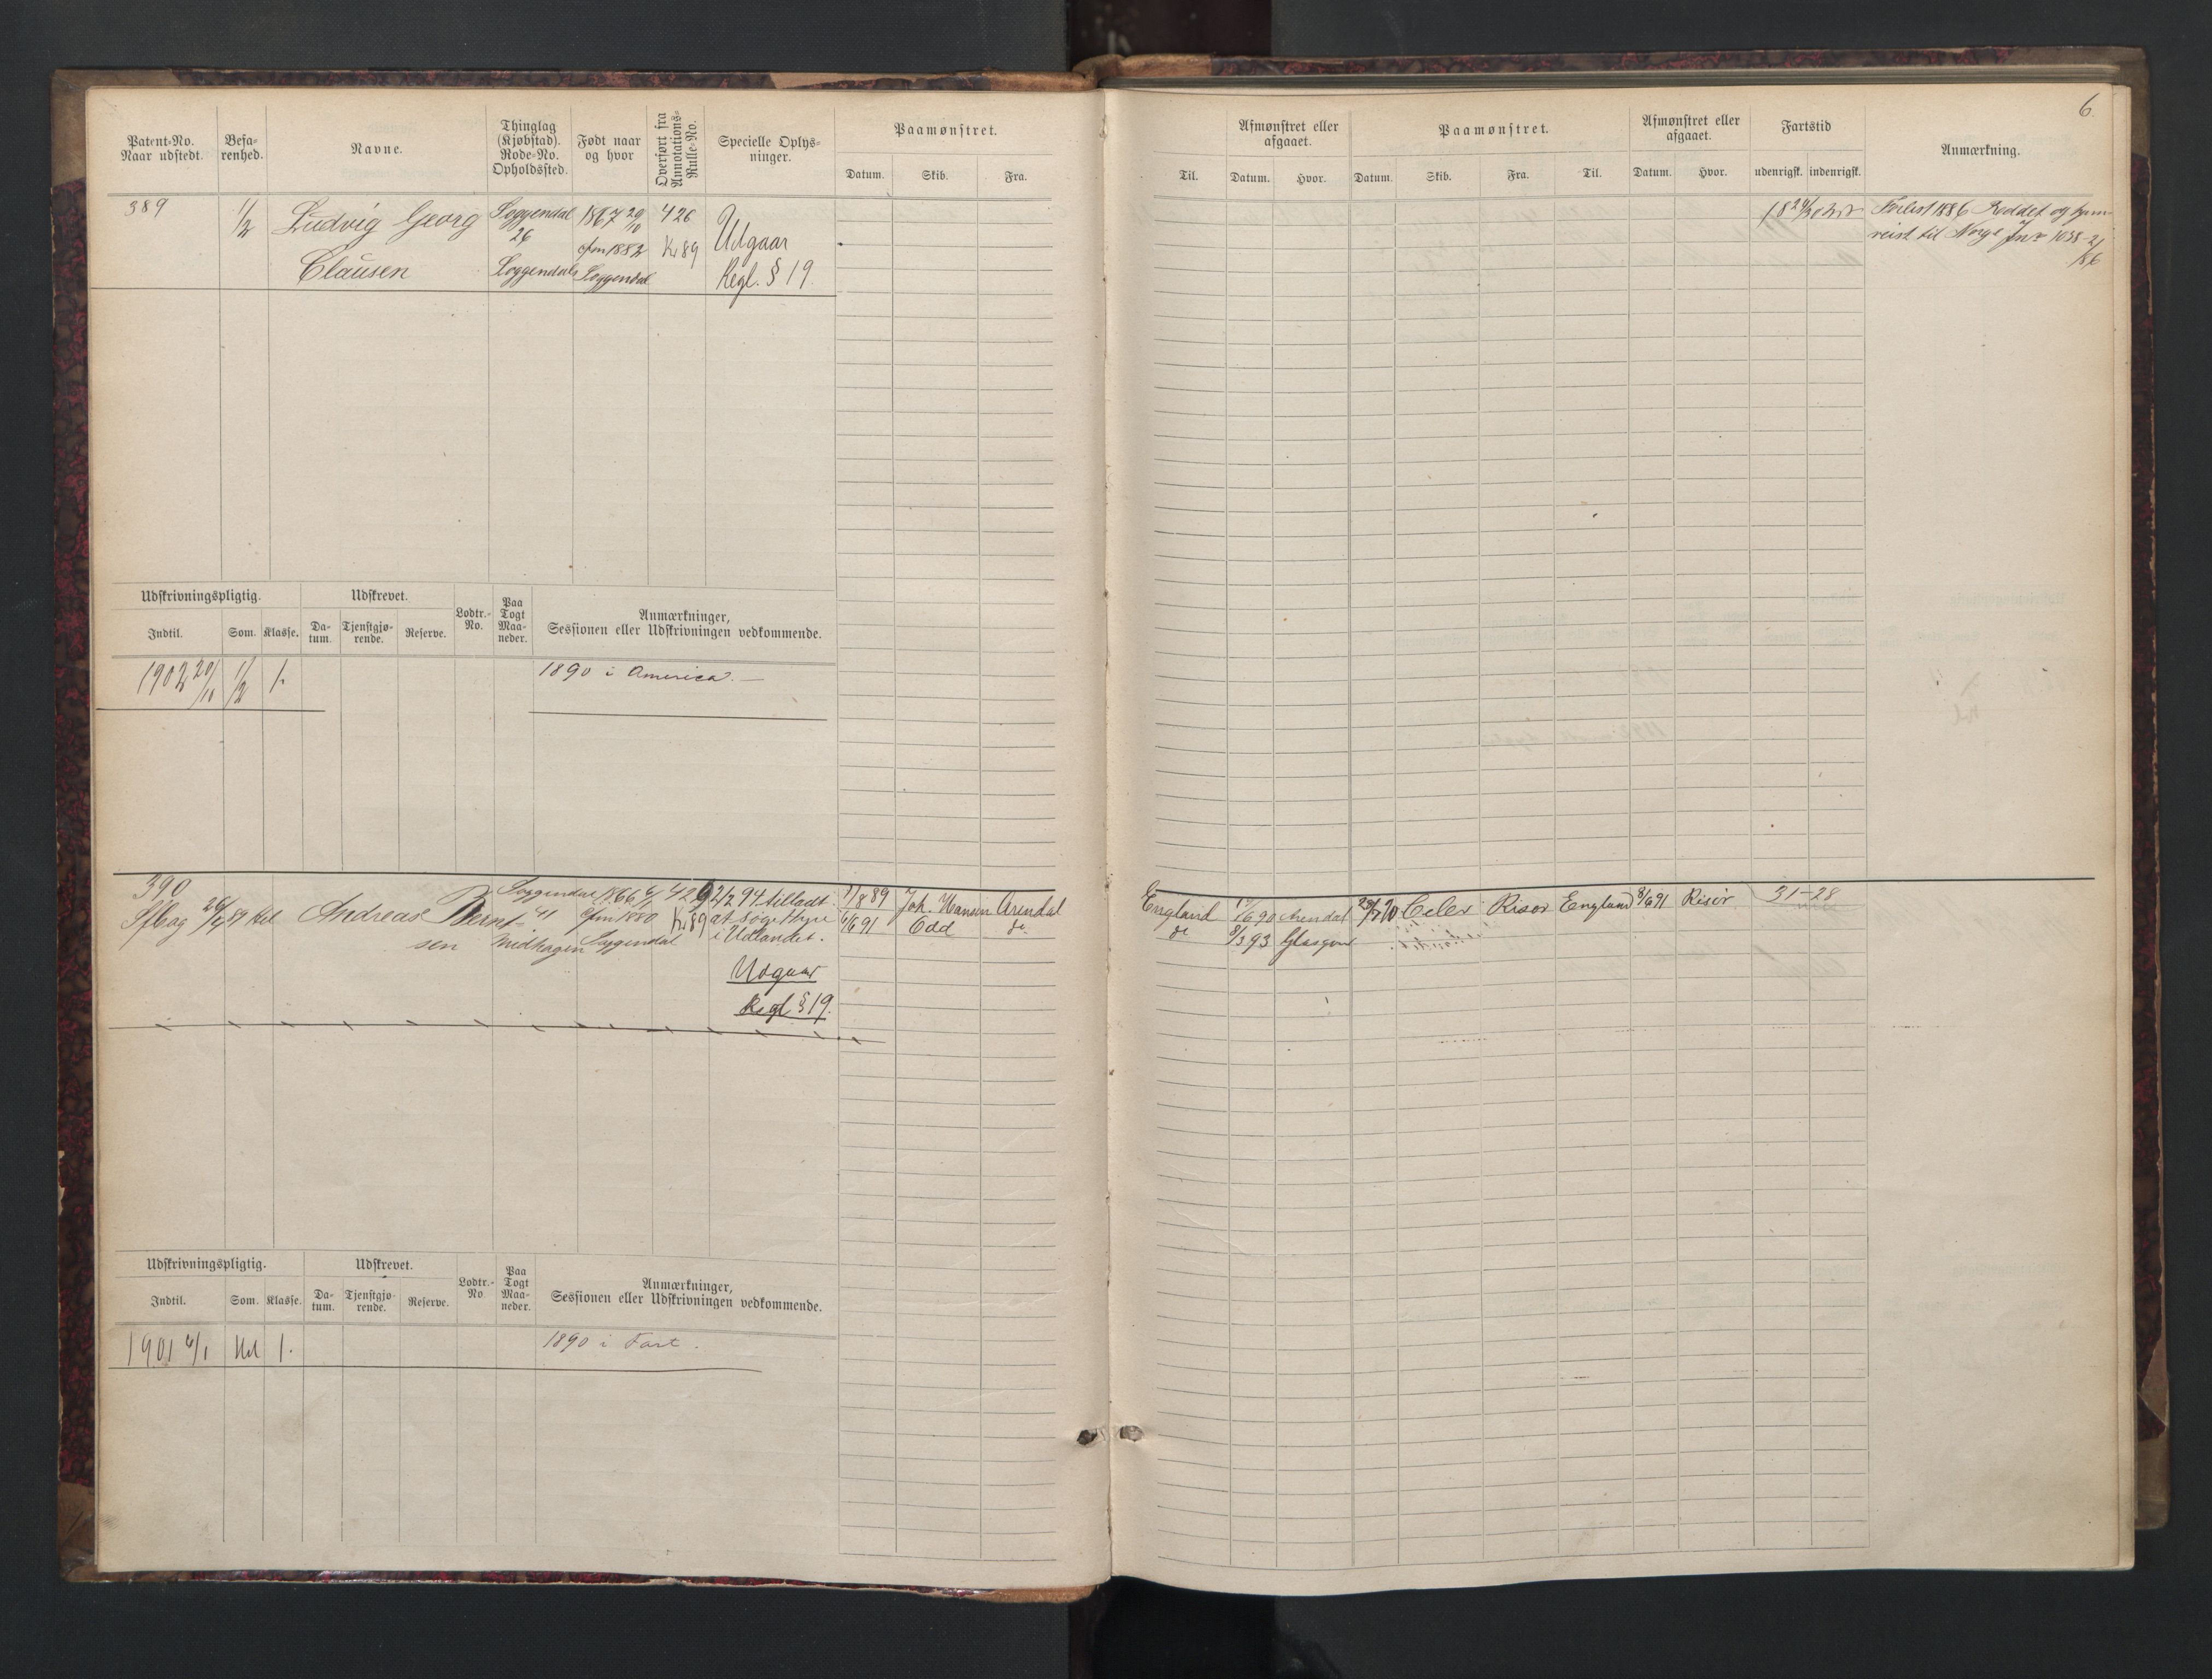 6
Patent-No. Naar udstedt.
Befa-renhed.
Navne.
Thinglag (Kjøbstad). Rode-No. Opholdssted.
Født naar og hvor
Overført fra Annotations-Rulle-No.
Specielle Oplys-ninger.
Paamønstret.
Datum. Skib. Fra.
Til.
Afmønstret eller afgaaet.
Datum. Hvor.
Paamønstret.
Datum. Skib. Fra. Til.
Afmønstret eller afgaaet.
Datum. Hvor.
Fartstid
udenrigsk. indenrigsk.
Anmærkning.
389 1/2 Ludvig Georg Soggendal 1867 20/10 426
26 Cfm 1882 Kr 89 Udgaar
Clausen Soggendal Soggendal Regl. § 19.
Forlist 1886 Reddet og hjem-
reist til Norge Jnr 1038
Udskrivningspligtig. Udskrevet. Lodtr.-No. Paa Togt Maa-neder. Anmærkninger,
Indtil. Som. Klasse. Da-tum. Tjenstgjø-rende. Reserve. Sessionen eller Udskrivningen vedkommende.
1902 20/10 1/2 1. 1890 i America. —
390 Soggendal 1866 6/1 429 2/2 94 tilladt 7/8 89 Joh. Hansen Arendal England Arendal 28/7 90 Celer Risør England 8/6 91 Risör 31-28
89 Hel Andreas Bernt- 41 Cfm 1880 Kr 89 at søge Hyre 6/6 91 Odd do do 8/3 93 Glasgow
sen Midhagen Soggendal i Udlandet.
Udgaar
Regl § 19.
Udskrivningspligtig. Udskrevet. Lodtr.-No Paa Togt Maa-neder. Anmærkninger,
Indtil. Som. Klasse. Da-tum. Tjenstgjø-rende. Reserve. Sessionen eller Udskrivningen vedkommende.
1901 6/1 Hel 1. 1890 i Fart.